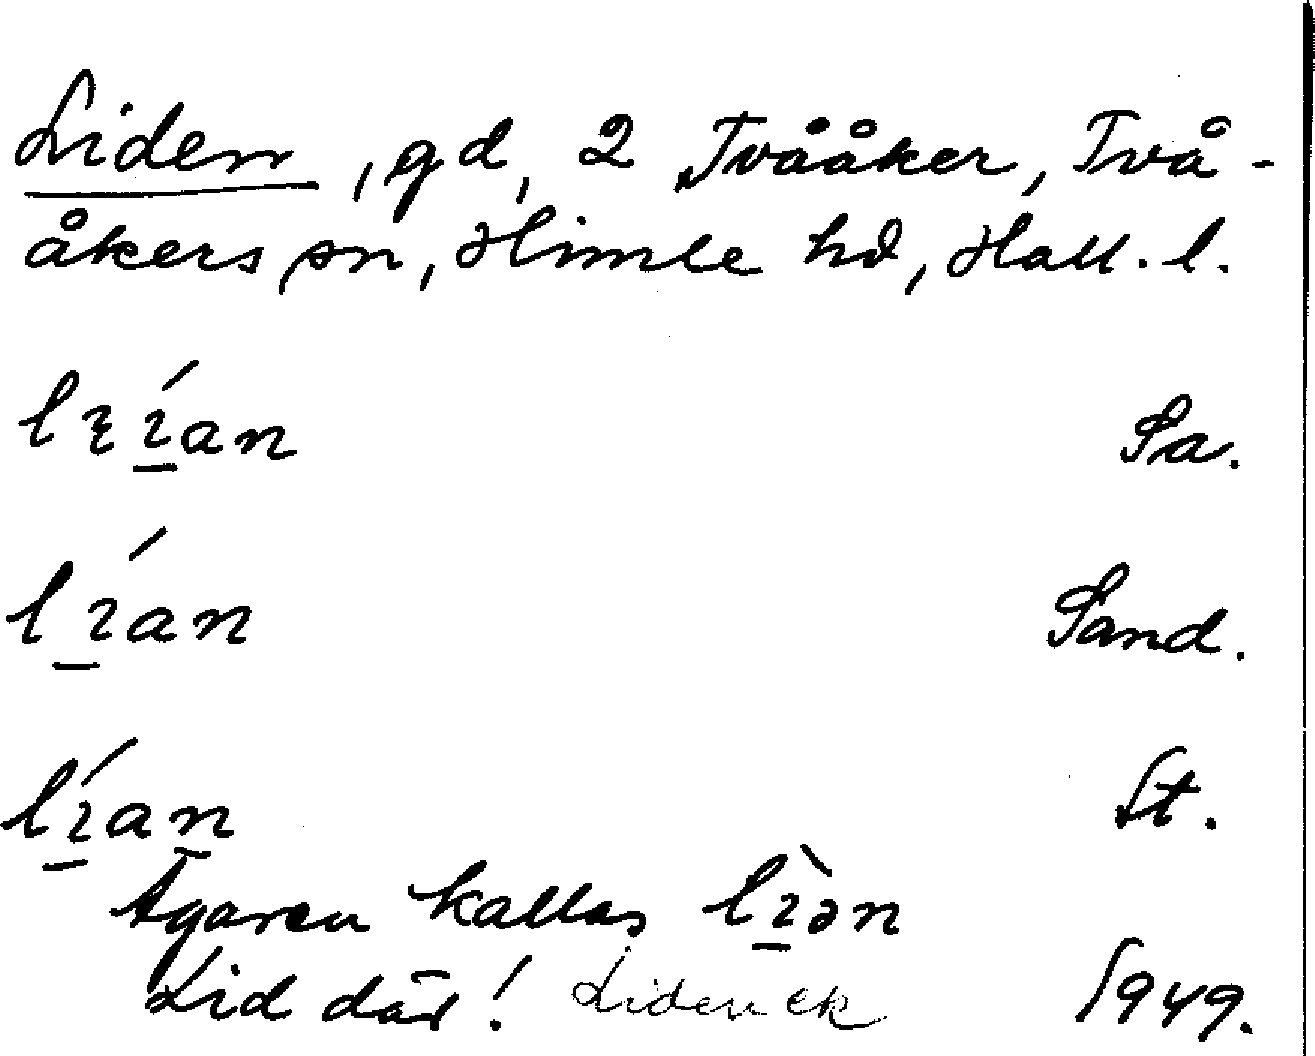 Liden, gd, 2 Tvååker, Två-
åkers sn, Himle hd, Hall. l.
lɪɪ́an Sa.
lɪ́an Sand.
lɪ́an St.
Ägaren kallas lɪ̀ən
Lid där! Liden ek 1949.